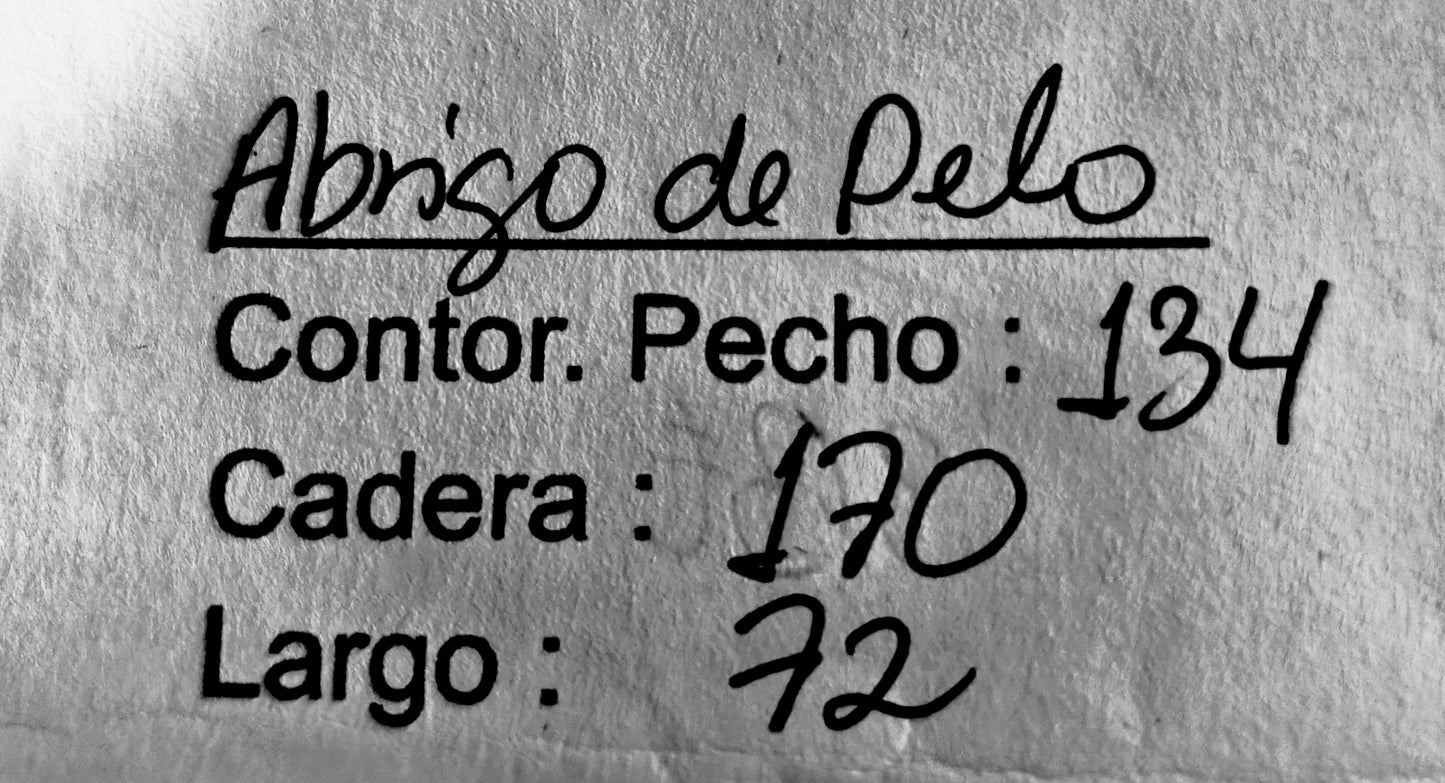 Abrigo de Pelo
Contor. Pecho : 134
Cadera : 170
Largo : 72